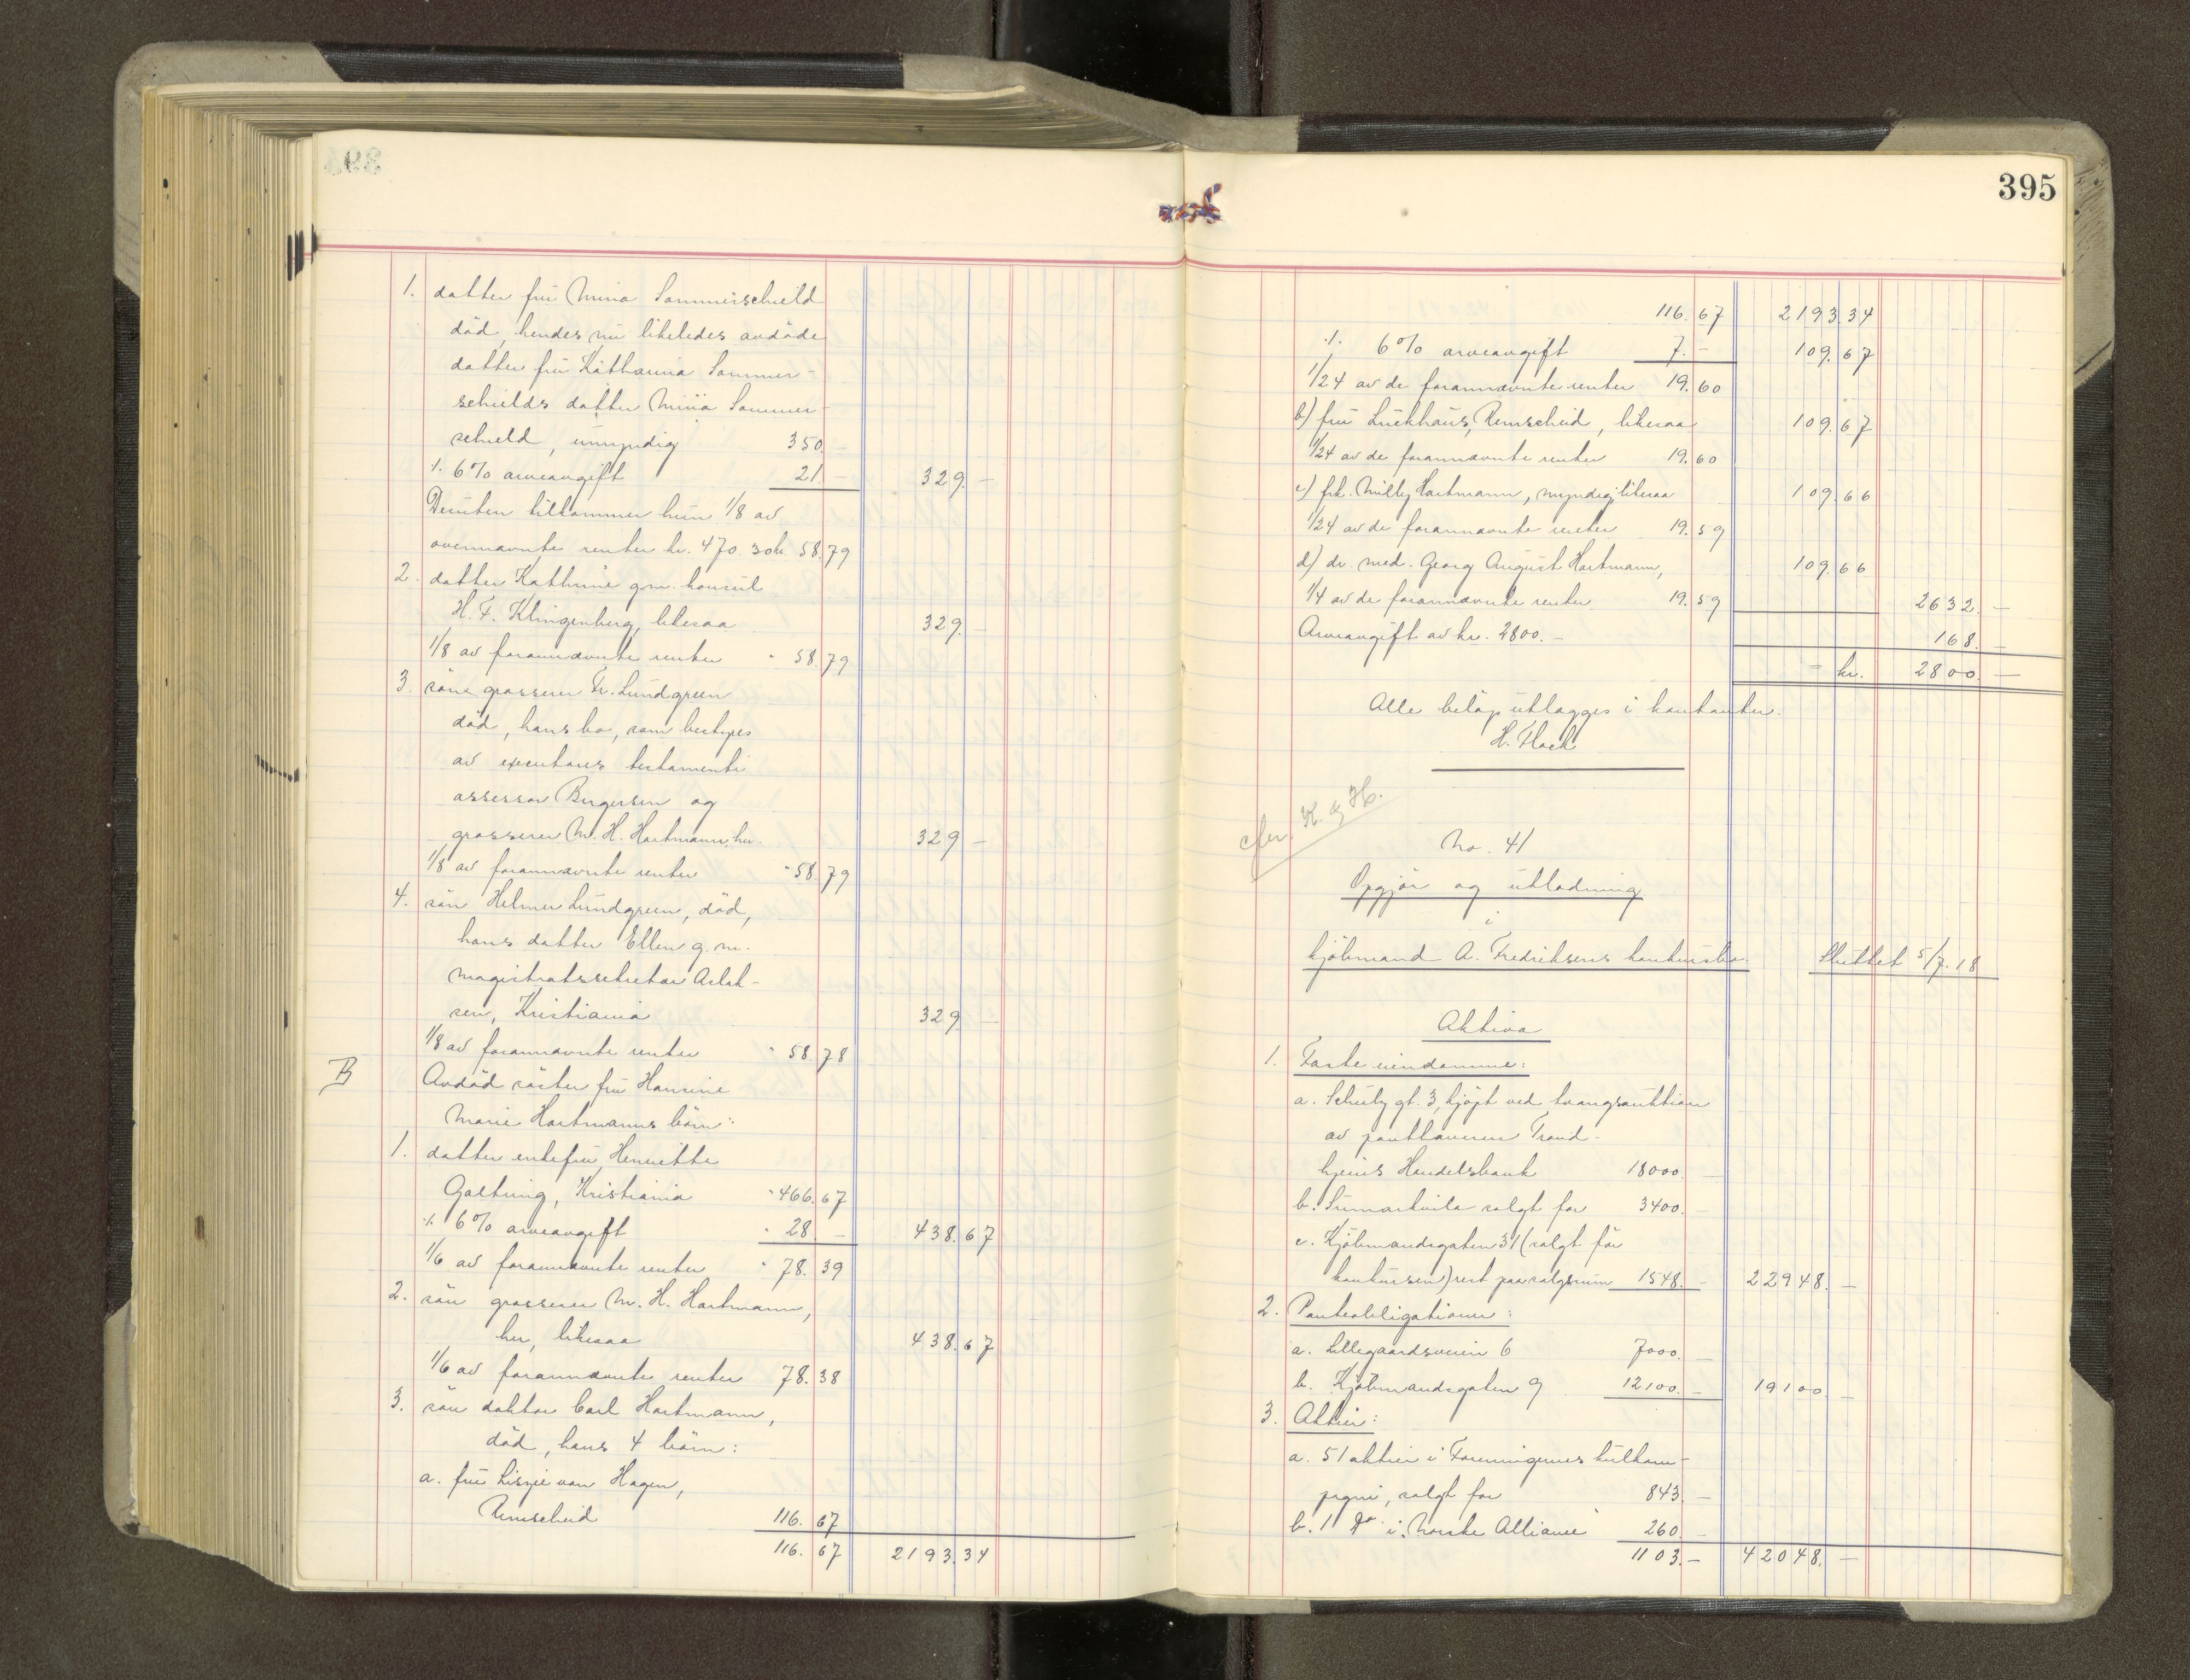 1. datter fru Mina Sommerschield
död, hendes nu likeledes avdöde
datter fru Katharina Sommer-
schields datter Mina Sommer-
schield, umyndig 350. -
·/. 6% arveavgift 21. - 329. -
Desuten tilkommer hun 1/8 av
ovennævnte renter kr. 470.30 kr. 58.79
2. datter Kathrine g.m. konsul
H. F. Klingenberg, likesaa 329. -
1/8 av forannævnte renter " 58.79
3. sön grosserer Fr. Lundgreen
död, hans bo, som bestyres
av executores testamenti
assessor Bergersen og
grosserer M. H. Hartmann, her 329 -
1/8 av forannævnte renter " 58.79
4. sön Helmer Lundgreen, död,
hans datter Ellen g.m.
magistratssekretær Aslak-
sen, Kristiania 329 -
1/8 av forannævnte renter " 58.78
B Avdöd söster fru Hansine
Marie Hartmanns börn:
1. datter enkefru Henriette
Galtung, Kristiania " 466.67
·/. 6% arveavgift " 28. - 438.67
1/6 av forannævnte renter " 78.39
2. sön grosserer M. H. Hartmann,
her, likesaa 438.67
1/6 av forannævnte renter 78.38
3. sön doktor Carl Hartmann,
död, hans 4 börn:
a. fru Liszie von Hagen,
Remscheid 116.67
116.67 2193.34
395
116.67 2193.34
·/. 6% arveavgift 7. - 109.67
1/24 av de forannævnte renter 19.60
b) fru Luckhaus, Remscheid, likesaa 109.67
1/24 av de forannævnte renter 19.60
c) frk. Milly Hartmann, myndig, likesaa 109.66
1/24 av de forannævnte renter 19.59
d) dr. med. Georg August Hartmann, 109.66
1/4 av de forannævnte renter 19.59 2632. -
Arveavgift av kr. 2800. - 168. -
= kr. 2800. -
Alle belöp utlægges i kontanter.
H. Flock
cfr. K. & H.
No. 41
Opgjör og utlodning
i
kjöbmand A. Fredriksens konkursbo. Sluttet 5/7.18
Aktiva
1. Faste eiendomme:
a. Schultz gt. 3, kjöpt ved tvangsauktion
av panthaveren Trond-
hjems Handelsbank 18000. -
b. Sumarkvila solgt for 3400. -
c. Kjöbmandsgaten 31 (solgt för
konkursen) rest paa salgssum 1548. - 22948. -
2. Panteobligationer:
a. Lillegaardsveien 6 7000. -
b. Kjöbmandsgaten 9 12100. - 19100. -
3. Aktier:
a. 51 aktier i Foreningernes kulkom-
pagni, solgt for 843. -
b. 1 do i "Norske Alliance" 260. -
1103. - 42048. -